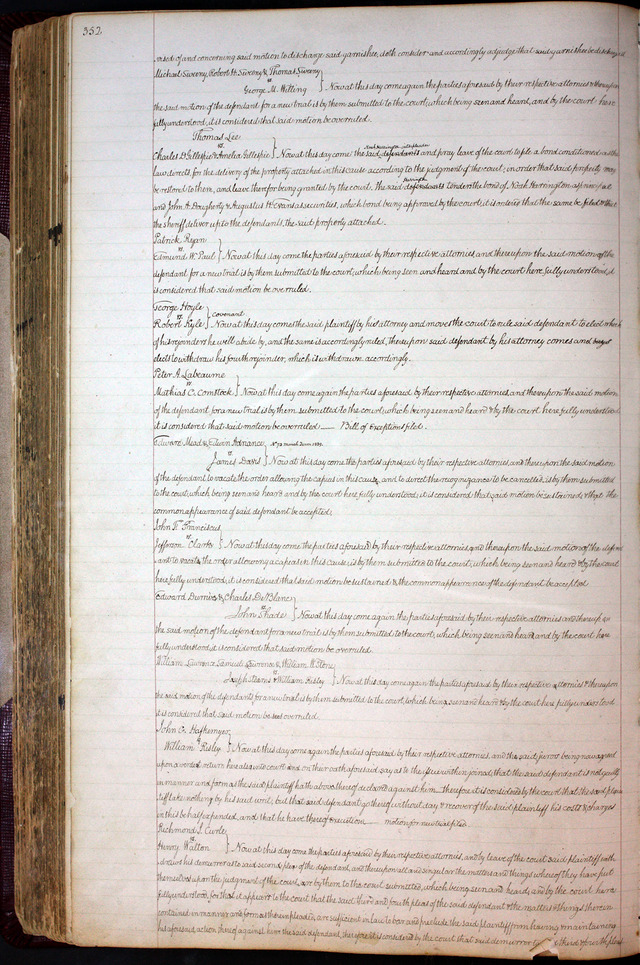 352
and of and concerning said motion to discharge said garnishee, doth consider and accordingly adjudge that said garnishee be discharged
Michael Sweeny, Robert H. Sweeny & Thomas Sweeny
vs
George M. Wilting } Now at this day come again the parties aforesaid by their respective attornies & thereupon
the said motion of the defendant for a new trial is by them submitted to the court, which being seen and heard, and by the court here
fully understood, it is considered that said motion be overruled.
Thomas Lee
vs
Charles D. Gillespie & Amelia Gillespie } Now at this day come the said defendants and pray leave of the court to file a bond conditioned as the
law directs for the delivery of the property attached in this cause according to the judgment of the court, in order that said property may
be restored to them, and leave therefor being granted by the court. The said defendants tenders the bond of Noah Herrington as principal
and John A. Dougherty & Augustus H. Evans as securities, which bond being approved by the court, it is ordered that the same be filed & that
the Sheriff deliver up to the defendants, the said property attached.
Patrick Ryan
vs
Edmund W. Paul } Now at this day come the parties aforesaid by their respective attornies and thereupon the said motion of the
defendant for a new trial is by them submitted to the court, which being seen and heard and by the court here fully understood, it
is considered that said motion be overruled.
George Hoyle
vs } Covenant
Robert Kyle } Now at this day comes the said plaintiff by his attorney and moves the court to rule said defendant to elect which
of his rejoinders he will abide by, and the same is accordingly ruled, thereupon said defendant by his attorney comes and
elects to withdraw his fourth rejoinder, which is withdrawn accordingly.
Peter A. Labeaume
vs
Mathias C. Comstock } Now at this day come again the parties aforesaid by their respective attornies, and thereupon the said motion
of the defendant for a new trial is by them submitted to the court, which being seen and heard & by the court here fully understood
it is considered that said motion be overruled. Bill of Exceptions filed.
Edward Mead & Edwin Adriance
vs
James Davis } Now at this day come the parties aforesaid by their respective attornies, and thereupon the said motion
of the defendant to vacate the order allowing the capias in this cause, and to direct the recognizance to be cancelled, is by them submitted
to the court, which being seen and heard and by the court here fully understood, it is considered that said motion be sustained & that the
common appearance of said defendant be accepted.
John F. Franciscus,
vs
Jefferson Clark } Now at this day come the parties aforesaid by their respective attornies, and thereupon the said motion of the defend
ant to vacate the order allowing a capias in this cause, is by them submitted to the court, which being seen and heard & by the court
here fully understood, it is considered that said motion be sustained & the common appearance of the defendant be accepted
Edward & Charles
vs
John Shade } Now at this day come again the parties aforesaid by their respective attornies and thereupon
the said motion of the defendant for a new trial is by them submitted to the court, which being seen and heard, and by the court here
fully understood, it is considered that said motion be overruled.
William Lawrence, Samuel & William H. Stone
vs
& William Risley } Now at this day come again the parties aforesaid by their respective attornies & thereupon
the said motion of the defendants for a new trial is by them submitted to the court, which being seen and heard & by the court here fully understood
it is considered that said motion be overruled.
John G.
vs
William Risley } Now at this day come again the parties aforesaid by their respective attornies, and the said jurors being now agreed
upon a verdict return here also into court and on their oath aforesaid say as to the issue within joined, that the said defendant is not guilty
in manner and form as the said plaintiff hath above thereof declared against him. Therefore it is considered by the court that the said plain
tiff take nothing by his said writ, but that said defendant go thereof without day & recover of the said plaintiff his costs & charges
in this behalf expended, and that he have thereof execution. motion for new trial filed.
Richmond J. Curle
vs
Henry Walton } Now at this day come the parties aforesaid by their respective attornies, and by leave of the court said plaintiff with
draws his demurrer as to said second plea of the defendant, and thereupon all and singular the matters and things whereof they have put
themselves upon the judgment of the court, are by them to the court submitted, which being seen and heard, and by the court here
fully understood, for that it appears to the court that the said third and fourth pleas of the said defendant & the matters & things therein
contained in manner and form as therein pleaded, are sufficient in law to bar and preclude the said plaintiff from having & maintaining
his aforesaid action thereof against him the said defendant, therefore it is considered by the court that said demurrer